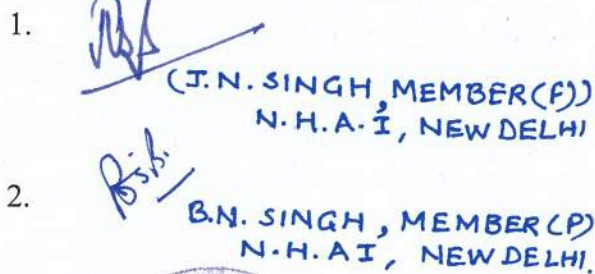 1.
(J.N. SINGH, MEMBER(F))
N.H.A.I, NEW DELHI
2.
B.N. SINGH, MEMBER(P)
N.H.AI, NEW DELHI.